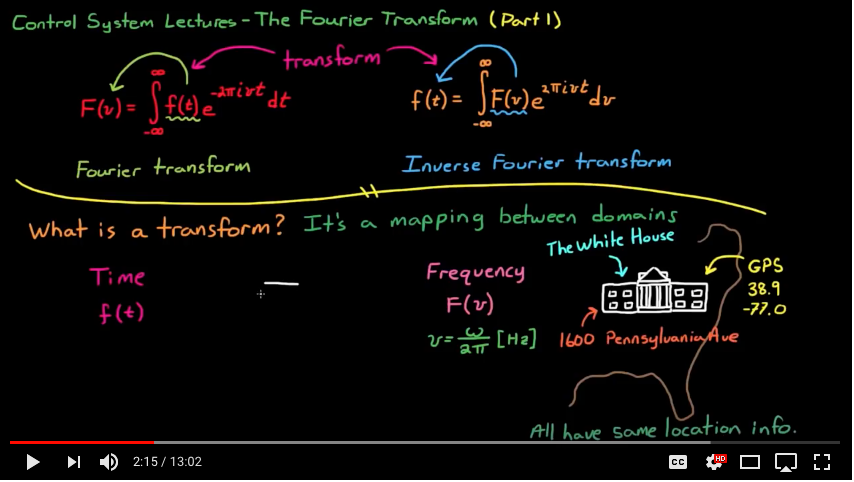 Control System Lectures - The Fourier Transform (Part 1)
transform
F(v) = ∫_{-∞}^{∞} f(t) e^{-2πivt} dt
f(t) = ∫_{-∞}^{∞} F(v) e^{2πivt} dv
Fourier transform
Inverse Fourier transform
What is a transform? It's a mapping between domains
The White House
Time
f(t)
Frequency
F(v)
v = ω/2π [Hz]
GPS
38.9
-77.0
1600 Pennsylvania Ave
All have same location info.
2:15 / 13:02
CC
HD